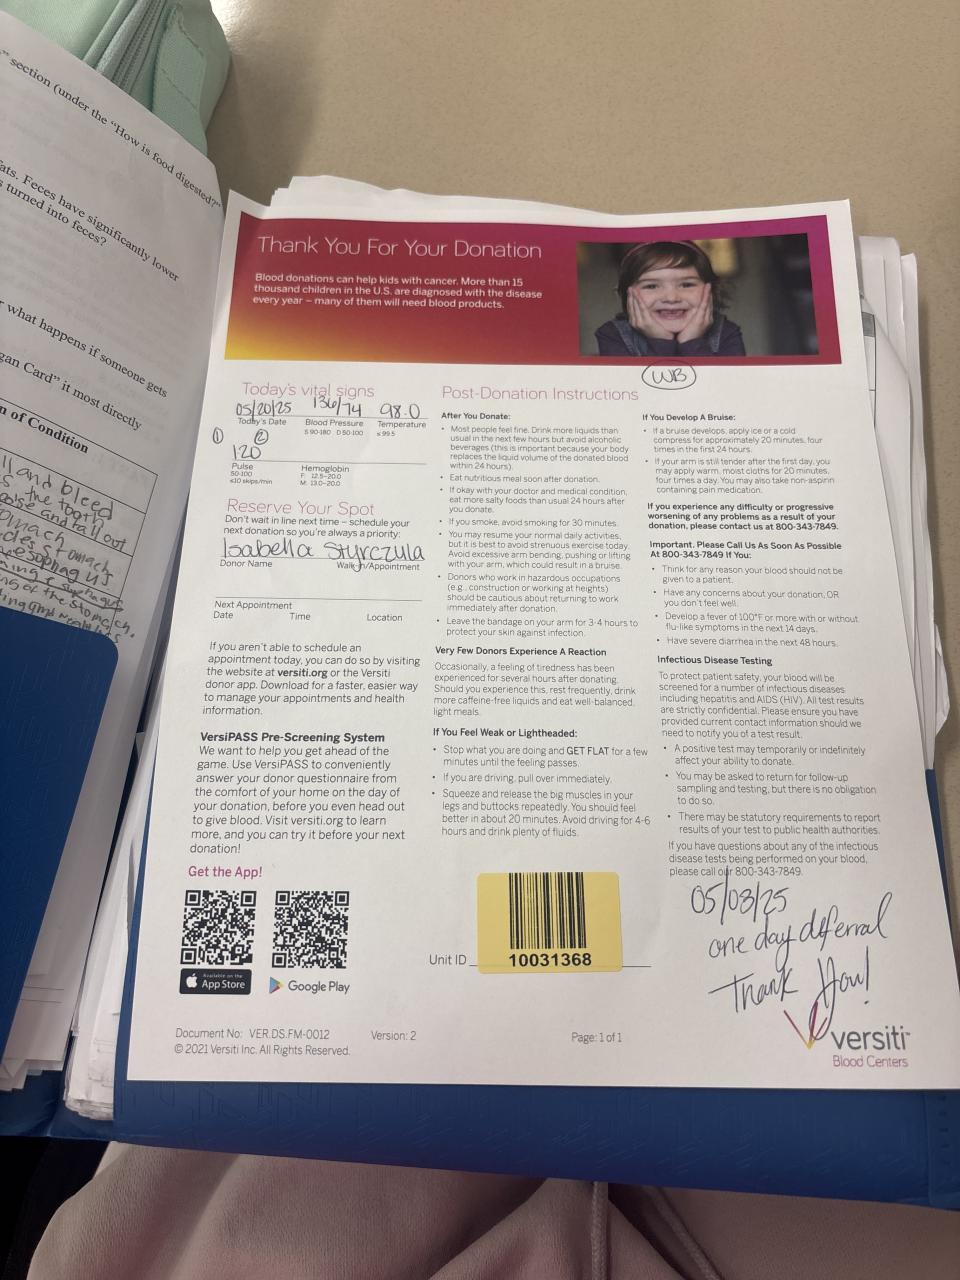 " section (under the "How is food digested?"
ats. Feces have significantly lower
s turned into feces?
what happens if someone gets
gan Card" it most directly
n of Condition
ll and bleed
s the tooth
and fall out
stomach
esophagus
of the stomach.
Thank You For Your Donation
Blood donations can help kids with cancer. More than 15
thousand children in the U.S. are diagnosed with the disease
every year – many of them will need blood products.
WB
Today's vital signs
05/20/25 136/74 98.0
Today's Date Blood Pressure Temperature
S 90-180 D 50-100 ≤ 99.5
① ②
120
Pulse Hemoglobin
50-100 F: 12.5-20.0
≤10 skips/min M: 13.0-20.0
Reserve Your Spot
Don't wait in line next time – schedule your
next donation so you're always a priority:
Isabella Styrczula
Donor Name Walk-In/Appointment
Next Appointment
Date Time Location
If you aren't able to schedule an
appointment today, you can do so by visiting
the website at versiti.org or the Versiti
donor app. Download for a faster, easier way
to manage your appointments and health
information.
VersiPASS Pre-Screening System
We want to help you get ahead of the
game. Use VersiPASS to conveniently
answer your donor questionnaire from
the comfort of your home on the day of
your donation, before you even head out
to give blood. Visit versiti.org to learn
more, and you can try it before your next
donation!
Get the App!
Available on the
App Store
Google Play
Post-Donation Instructions
After You Donate:
• Most people feel fine. Drink more liquids than
usual in the next few hours but avoid alcoholic
beverages (this is important because your body
replaces the liquid volume of the donated blood
within 24 hours).
• Eat nutritious meal soon after donation.
• If okay with your doctor and medical condition,
eat more salty foods than usual 24 hours after
you donate.
• If you smoke, avoid smoking for 30 minutes.
• You may resume your normal daily activities,
but it is best to avoid strenuous exercise today.
Avoid excessive arm bending, pushing or lifting
with your arm, which could result in a bruise.
• Donors who work in hazardous occupations
(e.g., construction or working at heights)
should be cautious about returning to work
immediately after donation.
• Leave the bandage on your arm for 3-4 hours to
protect your skin against infection.
Very Few Donors Experience A Reaction
Occasionally, a feeling of tiredness has been
experienced for several hours after donating.
Should you experience this, rest frequently, drink
more caffeine-free liquids and eat well-balanced,
light meals.
If You Feel Weak or Lightheaded:
• Stop what you are doing and GET FLAT for a few
minutes until the feeling passes.
• If you are driving, pull over immediately.
• Squeeze and release the big muscles in your
legs and buttocks repeatedly. You should feel
better in about 20 minutes. Avoid driving for 4-6
hours and drink plenty of fluids.
If You Develop A Bruise:
• If a bruise develops, apply ice or a cold
compress for approximately 20 minutes, four
times in the first 24 hours.
• If your arm is still tender after the first day, you
may apply warm, moist cloths for 20 minutes,
four times a day. You may also take non-aspirin
containing pain medication.
If you experience any difficulty or progressive
worsening of any problems as a result of your
donation, please contact us at 800-343-7849.
Important. Please Call Us As Soon As Possible
At 800-343-7849 If You:
• Think for any reason your blood should not be
given to a patient.
• Have any concerns about your donation, OR
you don't feel well.
• Develop a fever of 100°F or more with or without
flu-like symptoms in the next 14 days.
• Have severe diarrhea in the next 48 hours.
Infectious Disease Testing
To protect patient safety, your blood will be
screened for a number of infectious diseases
including hepatitis and AIDS (HIV). All test results
are strictly confidential. Please ensure you have
provided current contact information should we
need to notify you of a test result.
• A positive test may temporarily or indefinitely
affect your ability to donate.
• You may be asked to return for follow-up
sampling and testing, but there is no obligation
to do so.
• There may be statutory requirements to report
results of your test to public health authorities.
If you have questions about any of the infectious
disease tests being performed on your blood,
please call our 800-343-7849.
05/03/25
one day deferral
Thank You!
Unit ID
10031368
Document No: VER.DS.FM-0012 Version: 2 Page: 1 of 1
© 2021 Versiti Inc. All Rights Reserved.
versiti™
Blood Centers